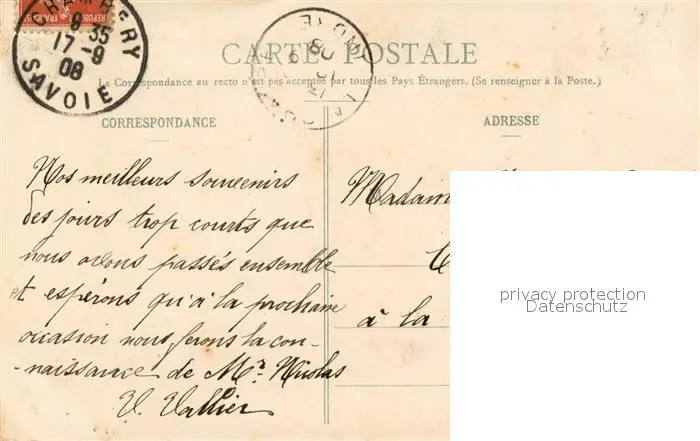 RÉPUBLIQUE FRANÇAISE
CHAMBERY
9 35
17 -9
08
SAVOIE
CARTE POSTALE
La Correspondance au recto n'est pas acceptée par tous les Pays Étrangers. (Se renseigner à la Poste.)
CORRESPONDANCE
Nos meilleurs souvenirs
des jours trop courts que
nous avons passés ensemble
et espérons qu'à la prochaine
occasion nous ferons la con-
-naissance de Mr. Nicolas
V. Vallier
ADRESSE
Madam
à la
privacy protection
Datenschutz